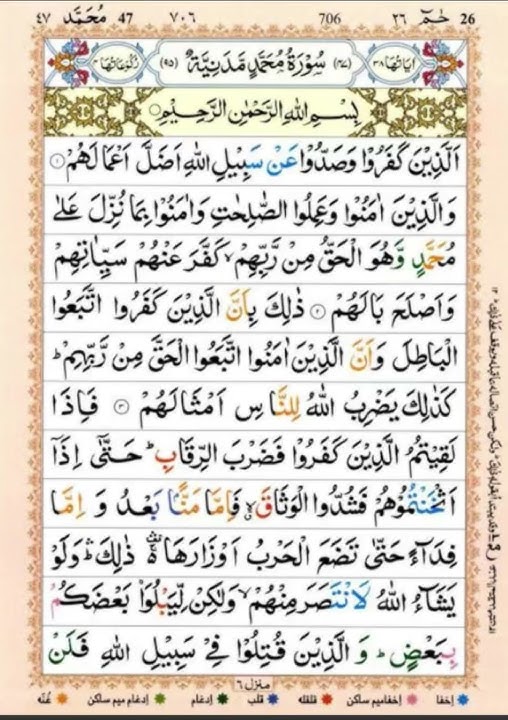 26 حٰمٓ ٢٦ 706 ٧٠٦ 47 مُحَمَّد ٤٧
اٰیَاتُهَا ٣٨ (٤٧) سُوْرَةُ مُحَمَّدٍ مَّدَنِیَّةٌ (٩٥) رُكُوْعَاتُهَا ٤
بِسْمِ اللّٰهِ الرَّحْمٰنِ الرَّحِیْمِ
اَلَّذِیْنَ كَفَرُوْا وَصَدُّوْا عَنْ سَبِیْلِ اللّٰهِ اَضَلَّ اَعْمَالَهُمْ ۝١
وَالَّذِیْنَ اٰمَنُوْا وَعَمِلُوا الصّٰلِحٰتِ وَاٰمَنُوْا بِمَا نُزِّلَ عَلٰی
مُحَمَّدٍ وَّهُوَ الْحَقُّ مِنْ رَّبِّهِمْ ۙ كَفَّرَ عَنْهُمْ سَیِّاٰتِهِمْ
وَاَصْلَحَ بَالَهُمْ ۝٢ ذٰلِكَ بِاَنَّ الَّذِیْنَ كَفَرُوا اتَّبَعُوا
الْبَاطِلَ وَاَنَّ الَّذِیْنَ اٰمَنُوا اتَّبَعُوا الْحَقَّ مِنْ رَّبِّهِمْ ؕ
كَذٰلِكَ یَضْرِبُ اللّٰهُ لِلنَّاسِ اَمْثَالَهُمْ ۝٣ فَاِذَا
لَقِیْتُمُ الَّذِیْنَ كَفَرُوْا فَضَرْبَ الرِّقَابِ ؕ حَتّٰۤی اِذَاۤ
اَثْخَنْتُمُوْهُمْ فَشُدُّوا الْوَثَاقَ ۙ فَاِمَّا مَنًّۢا بَعْدُ وَ اِمَّا
فِدَآءً حَتّٰی تَضَعَ الْحَرْبُ اَوْزَارَهَا ۛ۬ۚ ذٰلِكَ ۛؕ وَلَوْ
یَشَآءُ اللّٰهُ لَانْتَصَرَ مِنْهُمْ ۙ وَلٰكِنْ لِّیَبْلُوَا۟ بَعْضَكُمْ
بِبَعْضٍ ؕ وَ الَّذِیْنَ قُتِلُوْا فِیْ سَبِیْلِ اللّٰهِ فَلَنْ
منزل ٦
اِخفا اِخفامیم ساكن قلقله قلب اِدغام اِدغام میم ساكن غُنّه